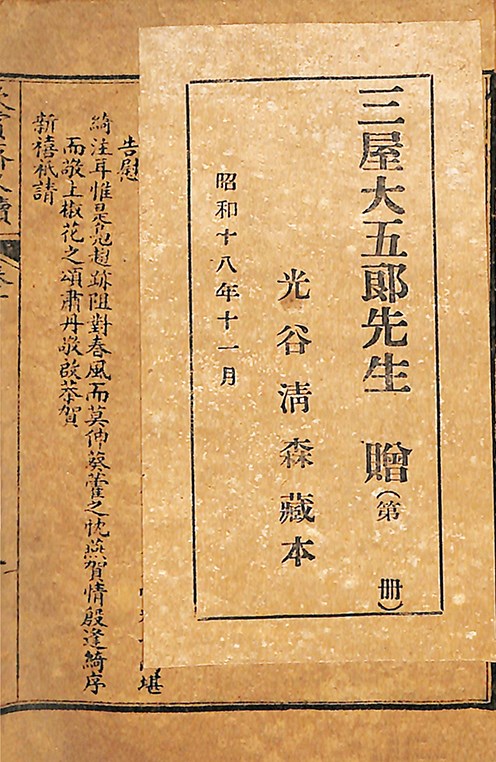 三屋大五郎先生 贈(第 冊)
光谷清森藏本
昭和十八年十一月
堪
告慰
綺注耳惟是凫趨跡阻對春風而莫伸葵藿之忱燕賀情殷逢綺序
而敬上椒花之頌肅丹敬啟恭賀
新禧祇請